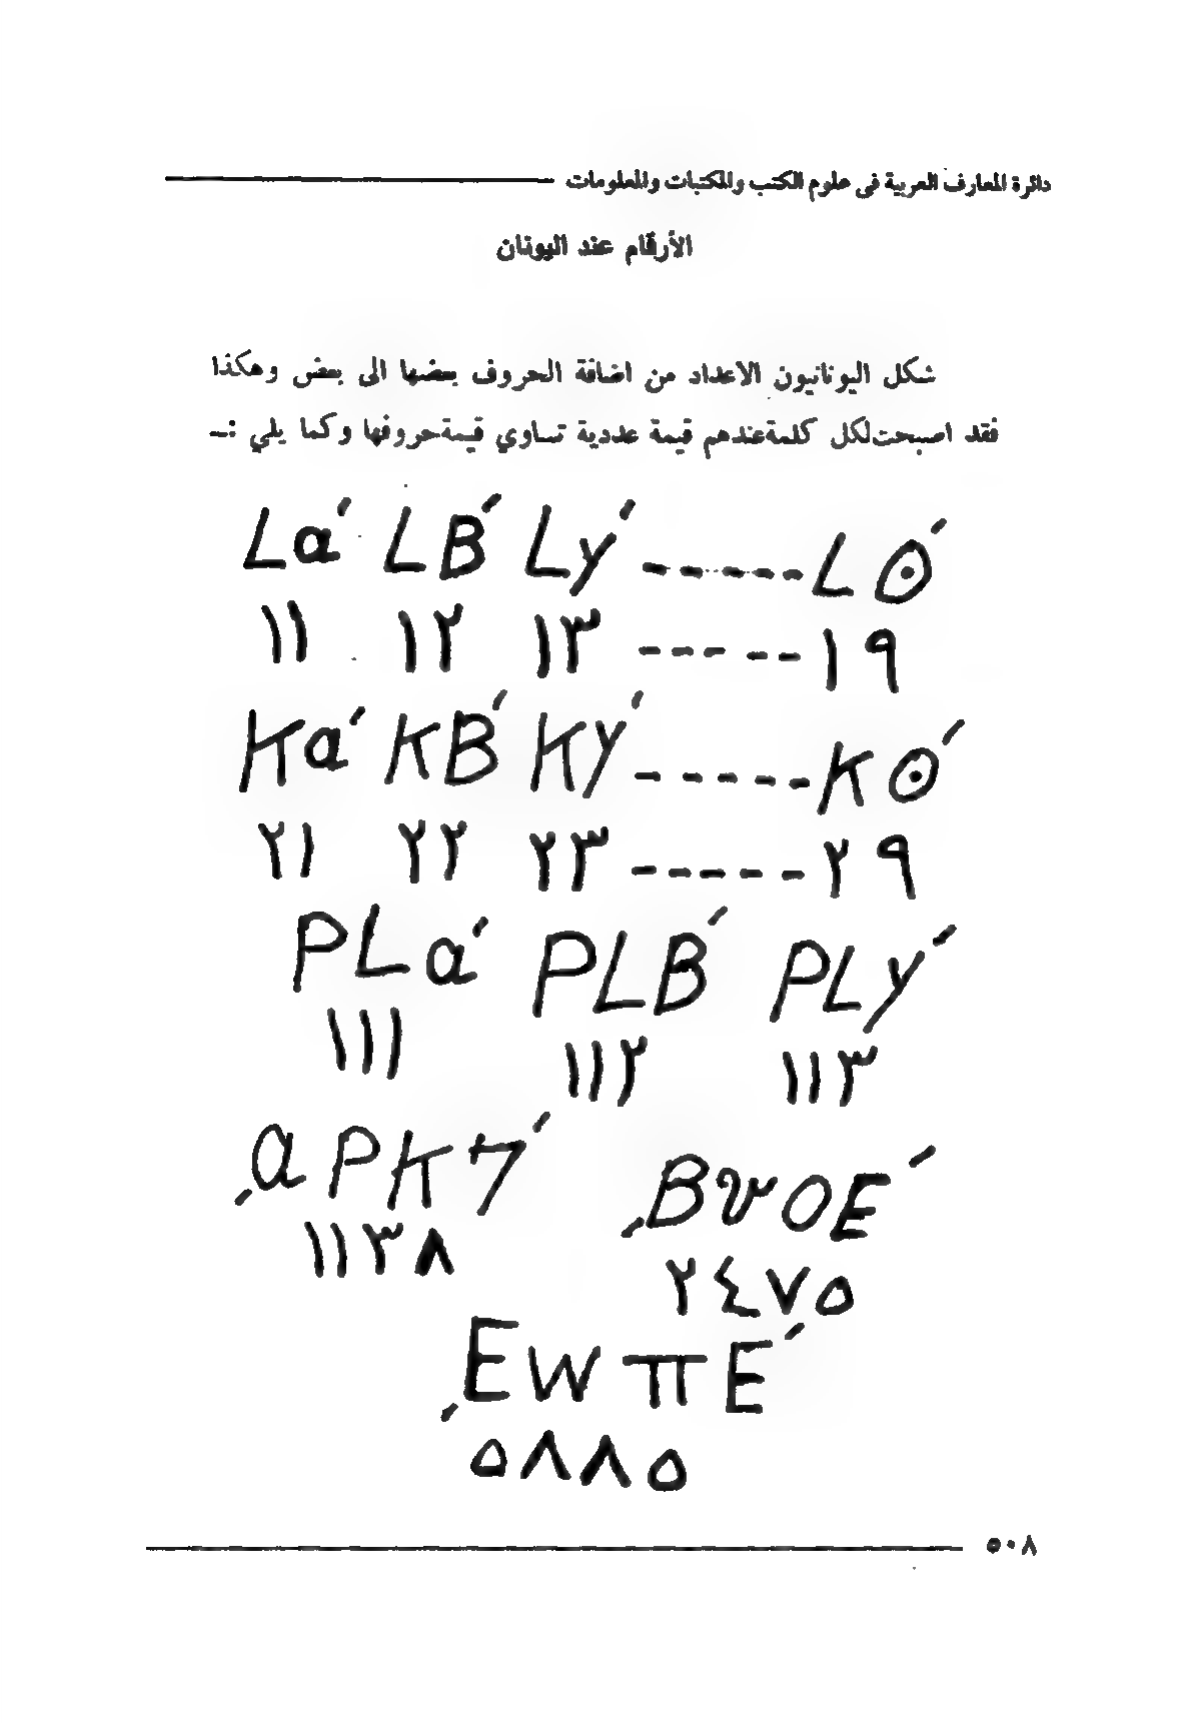 دائرة المعارف العربية فى علوم الكتب والمكتبات والمعلومات
الأرقام عند اليونان
شكل اليونانيون الاعداد من اضافة الحروف بعضها الى بعض وهكذا
فقد اصبحت لكل كلمة عندهم قيمة عددية تساوي قيمة حروفها وكما يلي :ـ
La′ LB′ Ly′ ----- LΘ′
١١ ١٢ ١٣ ----- ١٩
Ka′ KB′ Ky′ ----- KΘ′
٢١ ٢٢ ٢٣ ----- ٢٩
PLa′ PLB′ PLy′
١١١ ١١٢ ١١٣
͵aPK7′ ͵BvOE′
١١٣٨ ٢٤٧٥
͵EWπE′
٥٨٨٥
٥٠٨